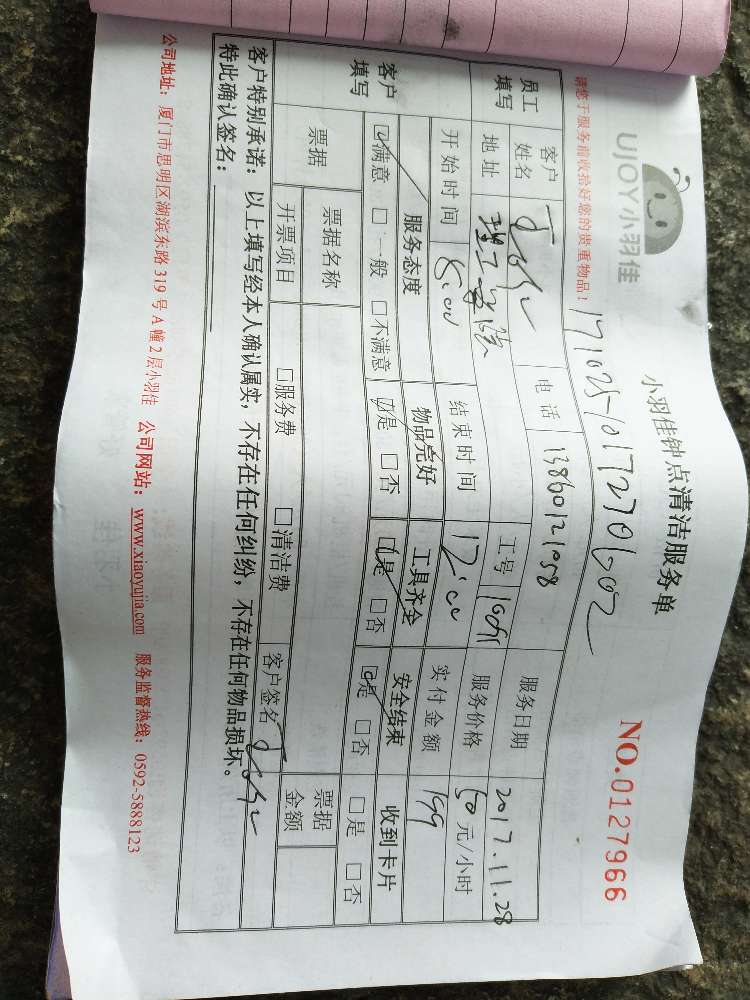 UJOY小羽佳
小羽佳钟点清洁服务单
NO.0127966
请您于服务前收拾好您的贵重物品！
员工填写 客户姓名 电话 13860121058 服务日期 2017.11.28
地址 理工学院 工号 服务价格 50元/小时
开始时间 8:00 结束时间 12:00 实付金额 199
客户填写 服务态度 物品完好 工具齐全 安全结束 收到卡片
☑满意 □一般 □不满意 ☑是 □否 ☑是 □否 ☑是 □否 □是 □否
票据 票据名称 票据金额
开票项目 □服务费 □清洁费 客户签名
客户特别承诺：以上填写经本人确认属实，不存在任何纠纷，不存在任何物品损坏。
特此确认签名：
公司地址：厦门市思明区湖滨东路319号A幢2层小羽佳 公司网站：www.xiaoyujia.com 服务监督热线：0592-5888123